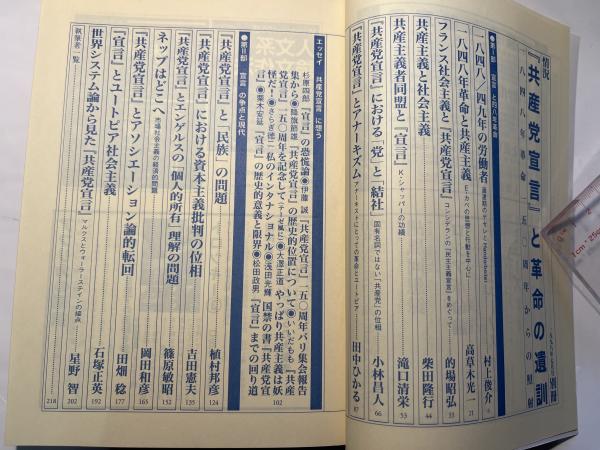 情況
『共産党宣言』と革命の遺訓
一八四八年革命一五〇周年からの照射
別冊
●第Ⅰ部 宣言と四八年革命
一八四八/四九年の労働者 村上俊介 4
一八四八年革命と共産主義 E・カベの思想と行動を中心に 高草木光一 21
フランス社会主義と『共産党宣言』 コンシデランの『民主主義宣言』をめぐって 的場昭弘 33
共産主義と社会主義 柴田隆行 44
共産主義者同盟と『宣言』 K・シャッパーの功績 滝口清栄 53
『共産党宣言』における「党」と「結社」 固有名詞ではない「共産党」の位相 小林昌人 66
『共産党宣言』とアナーキズム アナーキストにとっての革命とユートピア 田中ひかる 87
エッセイ 共産党宣言に想う
杉原四郎『宣言』の恐慌論●伊藤 誠『共産党宣言』一五〇周年パリ集会報告
集から●篠原敏雄『共産党宣言』の歴史的位置について●いいだもも『共産
党宣言』一五〇周年を記念して●大澤正道 やっぱり共産主義は妖
怪だ!●さらぎ徳二 私のインタナショナル●浅田光輝 国禁の書『共産党宣
言』●栗木安延『宣言』の歴史的意義と限界●松田政男『宣言』までの回り道
102
●第Ⅱ部 宣言の争点と現代
『共産党宣言』と「民族」の問題 植村邦彦 124
『共産党宣言』における資本主義批判の位相 吉田憲夫 135
『共産党宣言』とエンゲルスの「個人的所有」理解の問題 篠原敏昭 152
ネップはどこへ 市場社会主義の経済的問題 岡田和彦 165
『共産党宣言』とアソシエーション論的転回 田畑 稔 177
『宣言』とユートピア社会主義 石塚正英 192
世界システム論から見た『共産党宣言』 マルクスとウォーラーステインの接点 星野 智 202
執筆者一覧 218
1cm